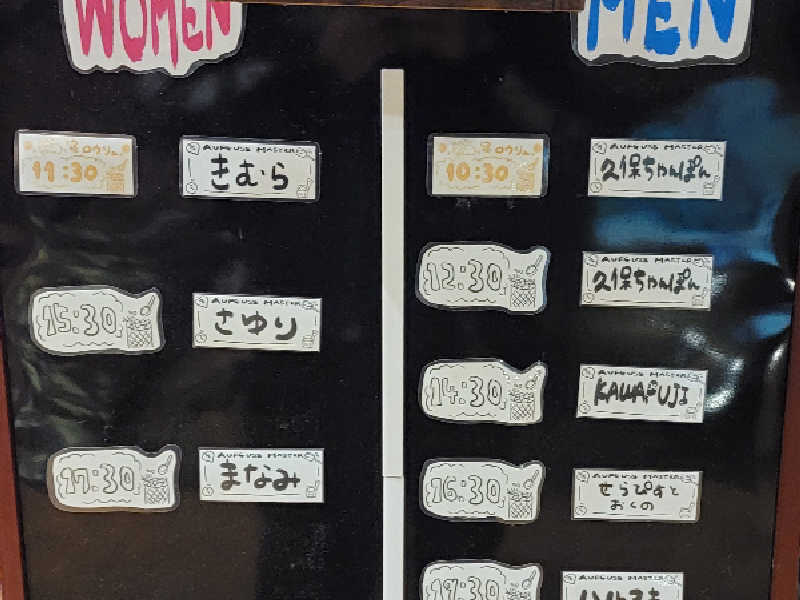 WOMEN
MEN
ロウリュ
11:30
AUFGUSS MASTER
きむら
15:30
AUFGUSS MASTER
さゆり
17:30
AUFGUSS MASTER
まなみ
ロウリュ
10:30
AUFGUSS MASTER
2保ちゃんぽん
12:30
AUFGUSS MASTER
2保ちゃんぽん
14:30
AUFGUSS MASTER
KAWAFUJI
16:30
AUFGUSS MASTER
せらぴすと
おくの
AUFGUSS MASTER